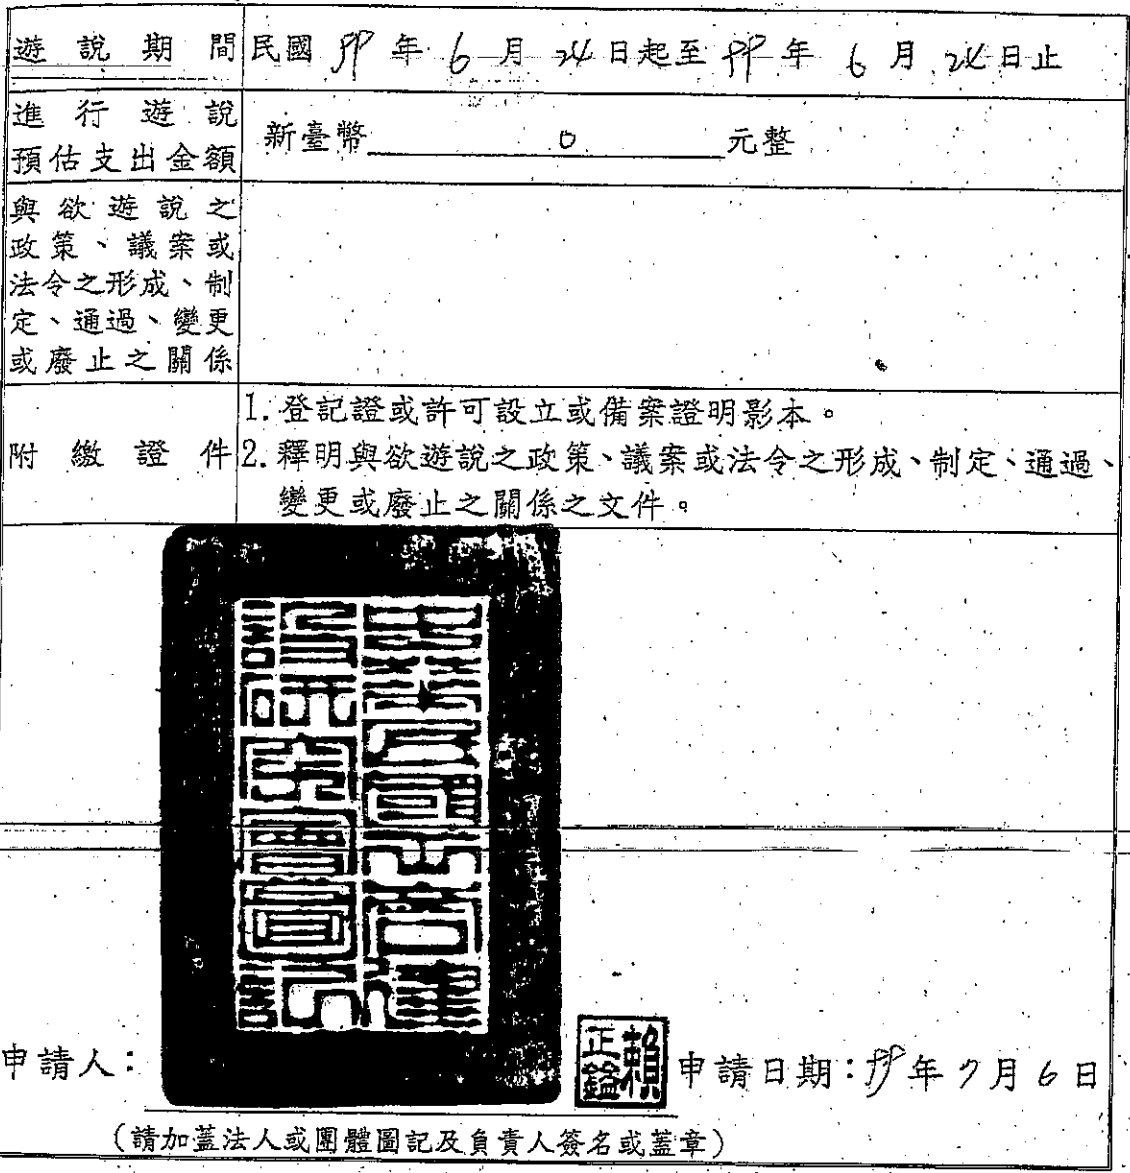 遊說期間 民國99年6月24日起至99年6月24日止
進行遊說
預估支出金額
新臺幣 0 元整
與欲遊說之
政策、議案或
法令之形成、制
定、通過、變更
或廢止之關係
附繳證件
1. 登記證或許可設立或備案證明影本。
2. 釋明與欲遊說之政策、議案或法令之形成、制定、通過、
變更或廢止之關係之文件。
申請人：
賴
正鎰
申請日期：99年7月6日
（請加蓋法人或團體圖記及負責人簽名或蓋章）